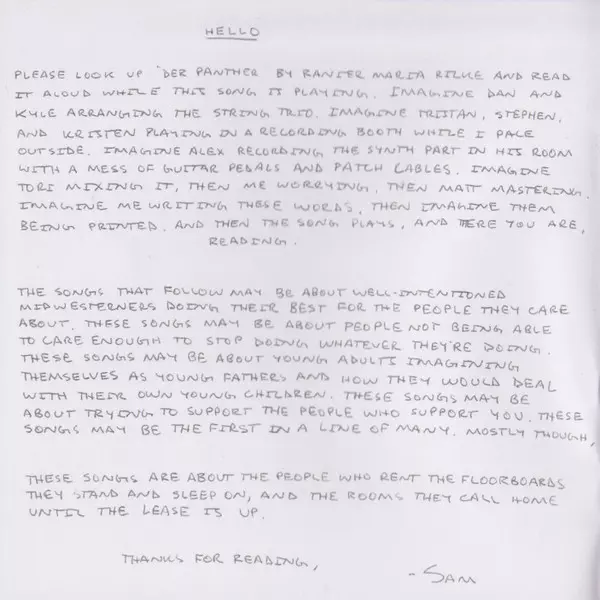 HELLO
PLEASE LOOK UP "DER PANTHER" BY RANIER MARIA RILKE AND READ
IT ALOUD WHILE THIS SONG IS PLAYING. IMAGINE DAN AND
KYLE ARRANGING THE STRING TRIO. IMAGINE TRISTAN, STEPHEN,
AND KRISTEN PLAYING IN A RECORDING BOOTH WHILE I PACE
OUTSIDE. IMAGINE ALEX RECORDING THE SYNTH PART IN HIS ROOM
WITH A MESS OF GUITAR PEDALS AND PATCH CABLES. IMAGINE
TORI MIXING IT, THEN ME WORRYING, THEN MATT MASTERING.
IMAGINE ME WRITING THESE WORDS, THEN IMAGINE THEM
BEING PRINTED. AND THEN THE SONG PLAYS, AND THERE YOU ARE,
READING.
THE SONGS THAT FOLLOW MAY BE ABOUT WELL-INTENTIONED
MIDWESTERNERS DOING THEIR BEST FOR THE PEOPLE THEY CARE
ABOUT. THESE SONGS MAY BE ABOUT PEOPLE NOT BEING ABLE
TO CARE ENOUGH TO STOP DOING WHATEVER THEY'RE DOING.
THESE SONGS MAY BE ABOUT YOUNG ADULTS IMAGINING
THEMSELVES AS YOUNG FATHERS AND HOW THEY WOULD DEAL
WITH THEIR OWN YOUNG CHILDREN. THESE SONGS MAY BE
ABOUT TRYING TO SUPPORT THE PEOPLE WHO SUPPORT YOU. THESE
SONGS MAY BE THE FIRST IN A LINE OF MANY. MOSTLY THOUGH,
THESE SONGS ARE ABOUT THE PEOPLE WHO RENT THE FLOORBOARDS
THEY STAND AND SLEEP ON, AND THE ROOMS THEY CALL HOME
UNTIL THE LEASE IS UP.
THANKS FOR READING,
-SAM